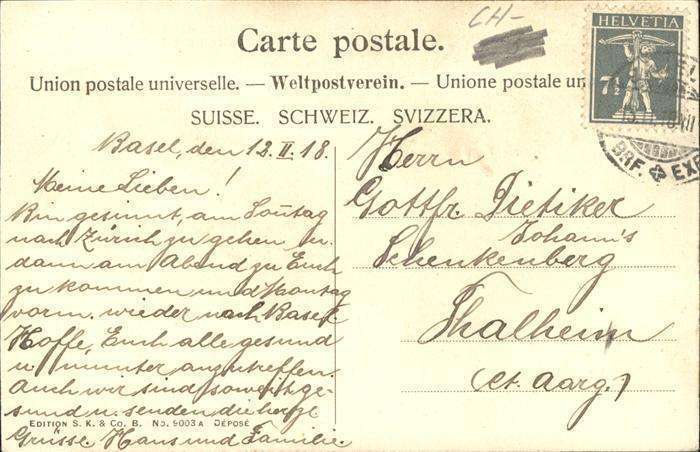 CH-
Carte postale.
Union postale universelle. — Weltpostverein. — Unione postale un
SUISSE. SCHWEIZ. SVIZZERA.
HELVETIA
7½
BRF. EXP
Basel, den 12.II.18.
Meine Lieben!
Bin gesinnt, am Sonntag
nach Zürich zu gehen u.
dann am Abend zu Euch
zu kommen und Montag
vorm. wieder nach Basel.
Hoffe, Euch alle gesund
u. munter anzutreffen.
Auch wir sind soweit ge-
sund u. senden die herzl.
Grüsse. Hans und Familie.
EDITION S. K. & CO. B. NO. 9003 A DÉPOSÉ
Herrn
Gottfr. Dietiker
Johann's
Schenkenberg
Thalheim
(Ct. Aarg.)